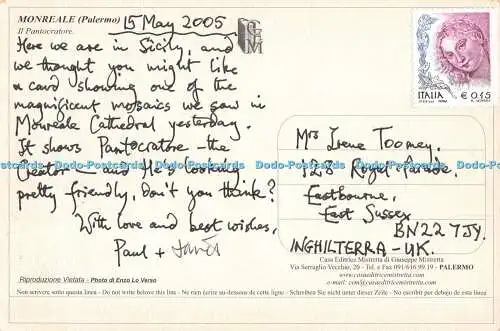 MONREALE (Palermo)
Il Pantocratore.
15 May 2005
Here we are in Sicily, and
we thought you might like
a card showing one of the
magnificent mosaics we saw in
Monreale Cathedral yesterday.
It shows Pantocratore – the
Creator – and He's looking
pretty friendly, don't you think?
With love and best wishes,
Paul +
ITALIA
€ 0,45
Mrs Irene Toomey,
128 Royal Parade,
Eastbourne,
East Sussex
BN22 7JY.
INGHILTERRA - UK.
Casa Editrice Mistretta di Giuseppe Mistretta
Via Serraglio Vecchio, 26 - Tel. e Fax 091/616 99 19 - PALERMO
www.casaeditricemistretta.com
e-mail: cem@casaeditricemistretta.com
Riproduzione Vietata - Photo di Enzo Lo Verso
Non scrivere sotto questa linea - Do not write below this line - Ne rien écrire au-dessous de cette ligne - Schreiben Sie nicht unter dieser Zeile - No escribir por debejo de esta linea
Dodo-Postcards Dodo-Postcards Dodo-Postcards Dodo-Postcards Dodo-Postcards